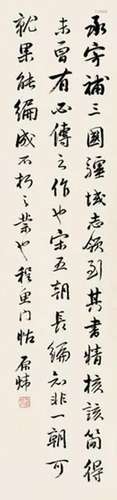 承寄補三國疆域志領到其書精核該簡得
未曾有必傳之作也宋五朝長編知非一朝可
就果能編成不朽之業也程魚門帖 原煒